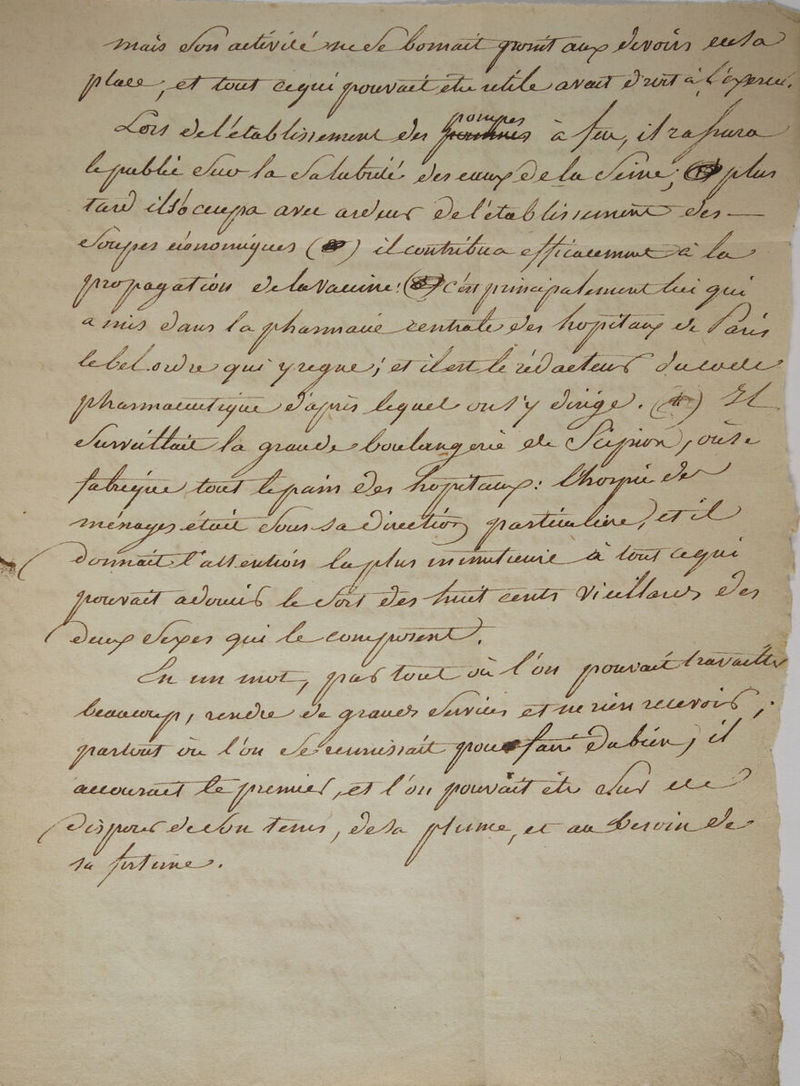 mais son activité ne se bornait point aux devoirs de sa
place, et tout ce qui pouvait etre utile avait droit à l'exercer.
Lors de l'établissement des pompes à feu, il rassura
le public sur la salubrité des eaux de la Seine; plus
tard il s'occupa avec ardeur de l'établissement des —
soupes économiques () il contribua efficacement à la
propagation de la vaccine: c'est principalement lui qui
a mis dans la pharmacie centrale des hopitaux de Paris
le bel ordre qui y regne; et il est le rédacteur du code
pharmaceutique d'après lequel on s'y dirige. () Il
surveillait la grande boulangerie de Scipion, où se
fabrique tout le pain des hopitaux: l'hospice des
ménages était sous sa direction particuliere, et il
donnait l'attention la plus minutieuse à tout ce qui
pouvait adoucir le sort des huit cents vieillards des
deux sexes qui le composent.
En un mot, partout où l'on pouvait travailler
beaucoup, rendre de grands services et ne rien recevoir;
partout où l'on se reunissait pour faire du bien, il
accourait le premier, et l'on pouvait etre sur de
disposer de son tems, de sa plume, et au besoin de
sa fortune.